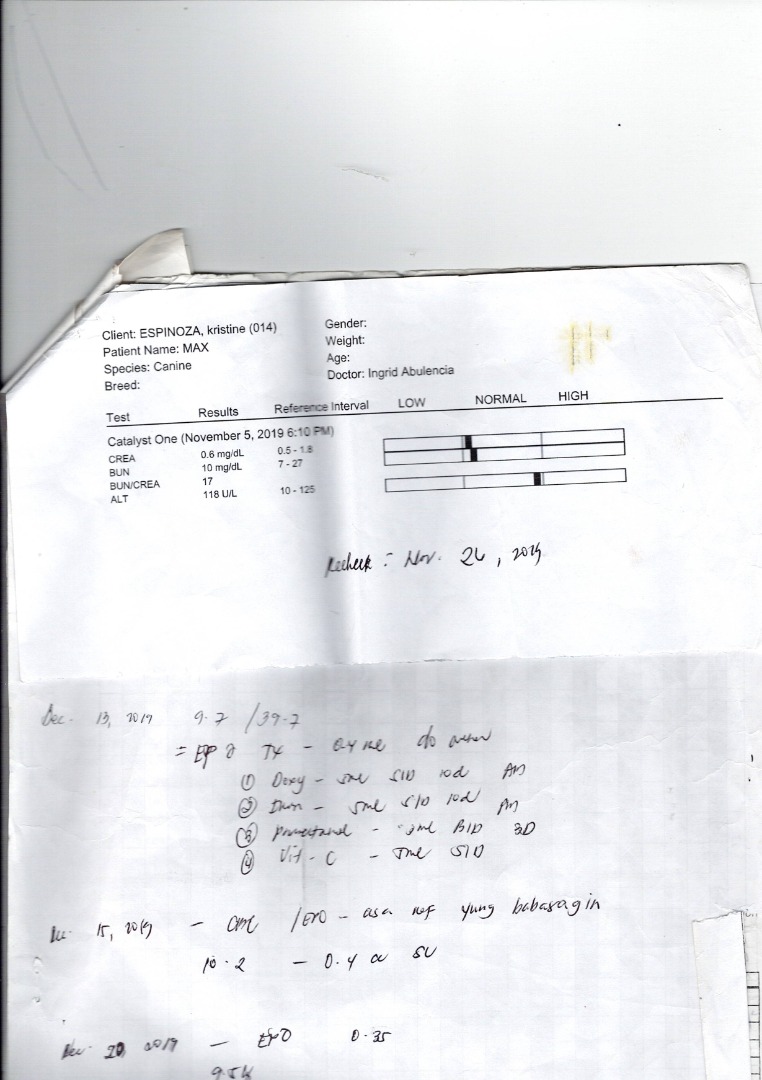 Client: ESPINOZA, kristine (014)
Patient Name: MAX
Species: Canine
Breed:
Gender:
Weight:
Age:
Doctor: Ingrid Abulencia
Test Results Reference Interval LOW NORMAL HIGH
Catalyst One (November 5, 2019 6:10 PM)
CREA 0.6 mg/dL 0.5 - 1.8
BUN 10 mg/dL 7 - 27
BUN/CREA 17
ALT 118 U/L 10 - 125
Recheck : Nov. 26, 2019
Dec. 13, 2019 9.7 /39.7
Tx -
① Doxy - SID 10d AM
② - 5ml SID 10d PM
③ - BID 3D
④ Vit - C - SID
Dec. 15, 2019 - CBC /EPO - asa ref yung babasagin
10.2 - 0.4 cc SC
Dec. 20, 2019 - EPO 0.35
9.5k